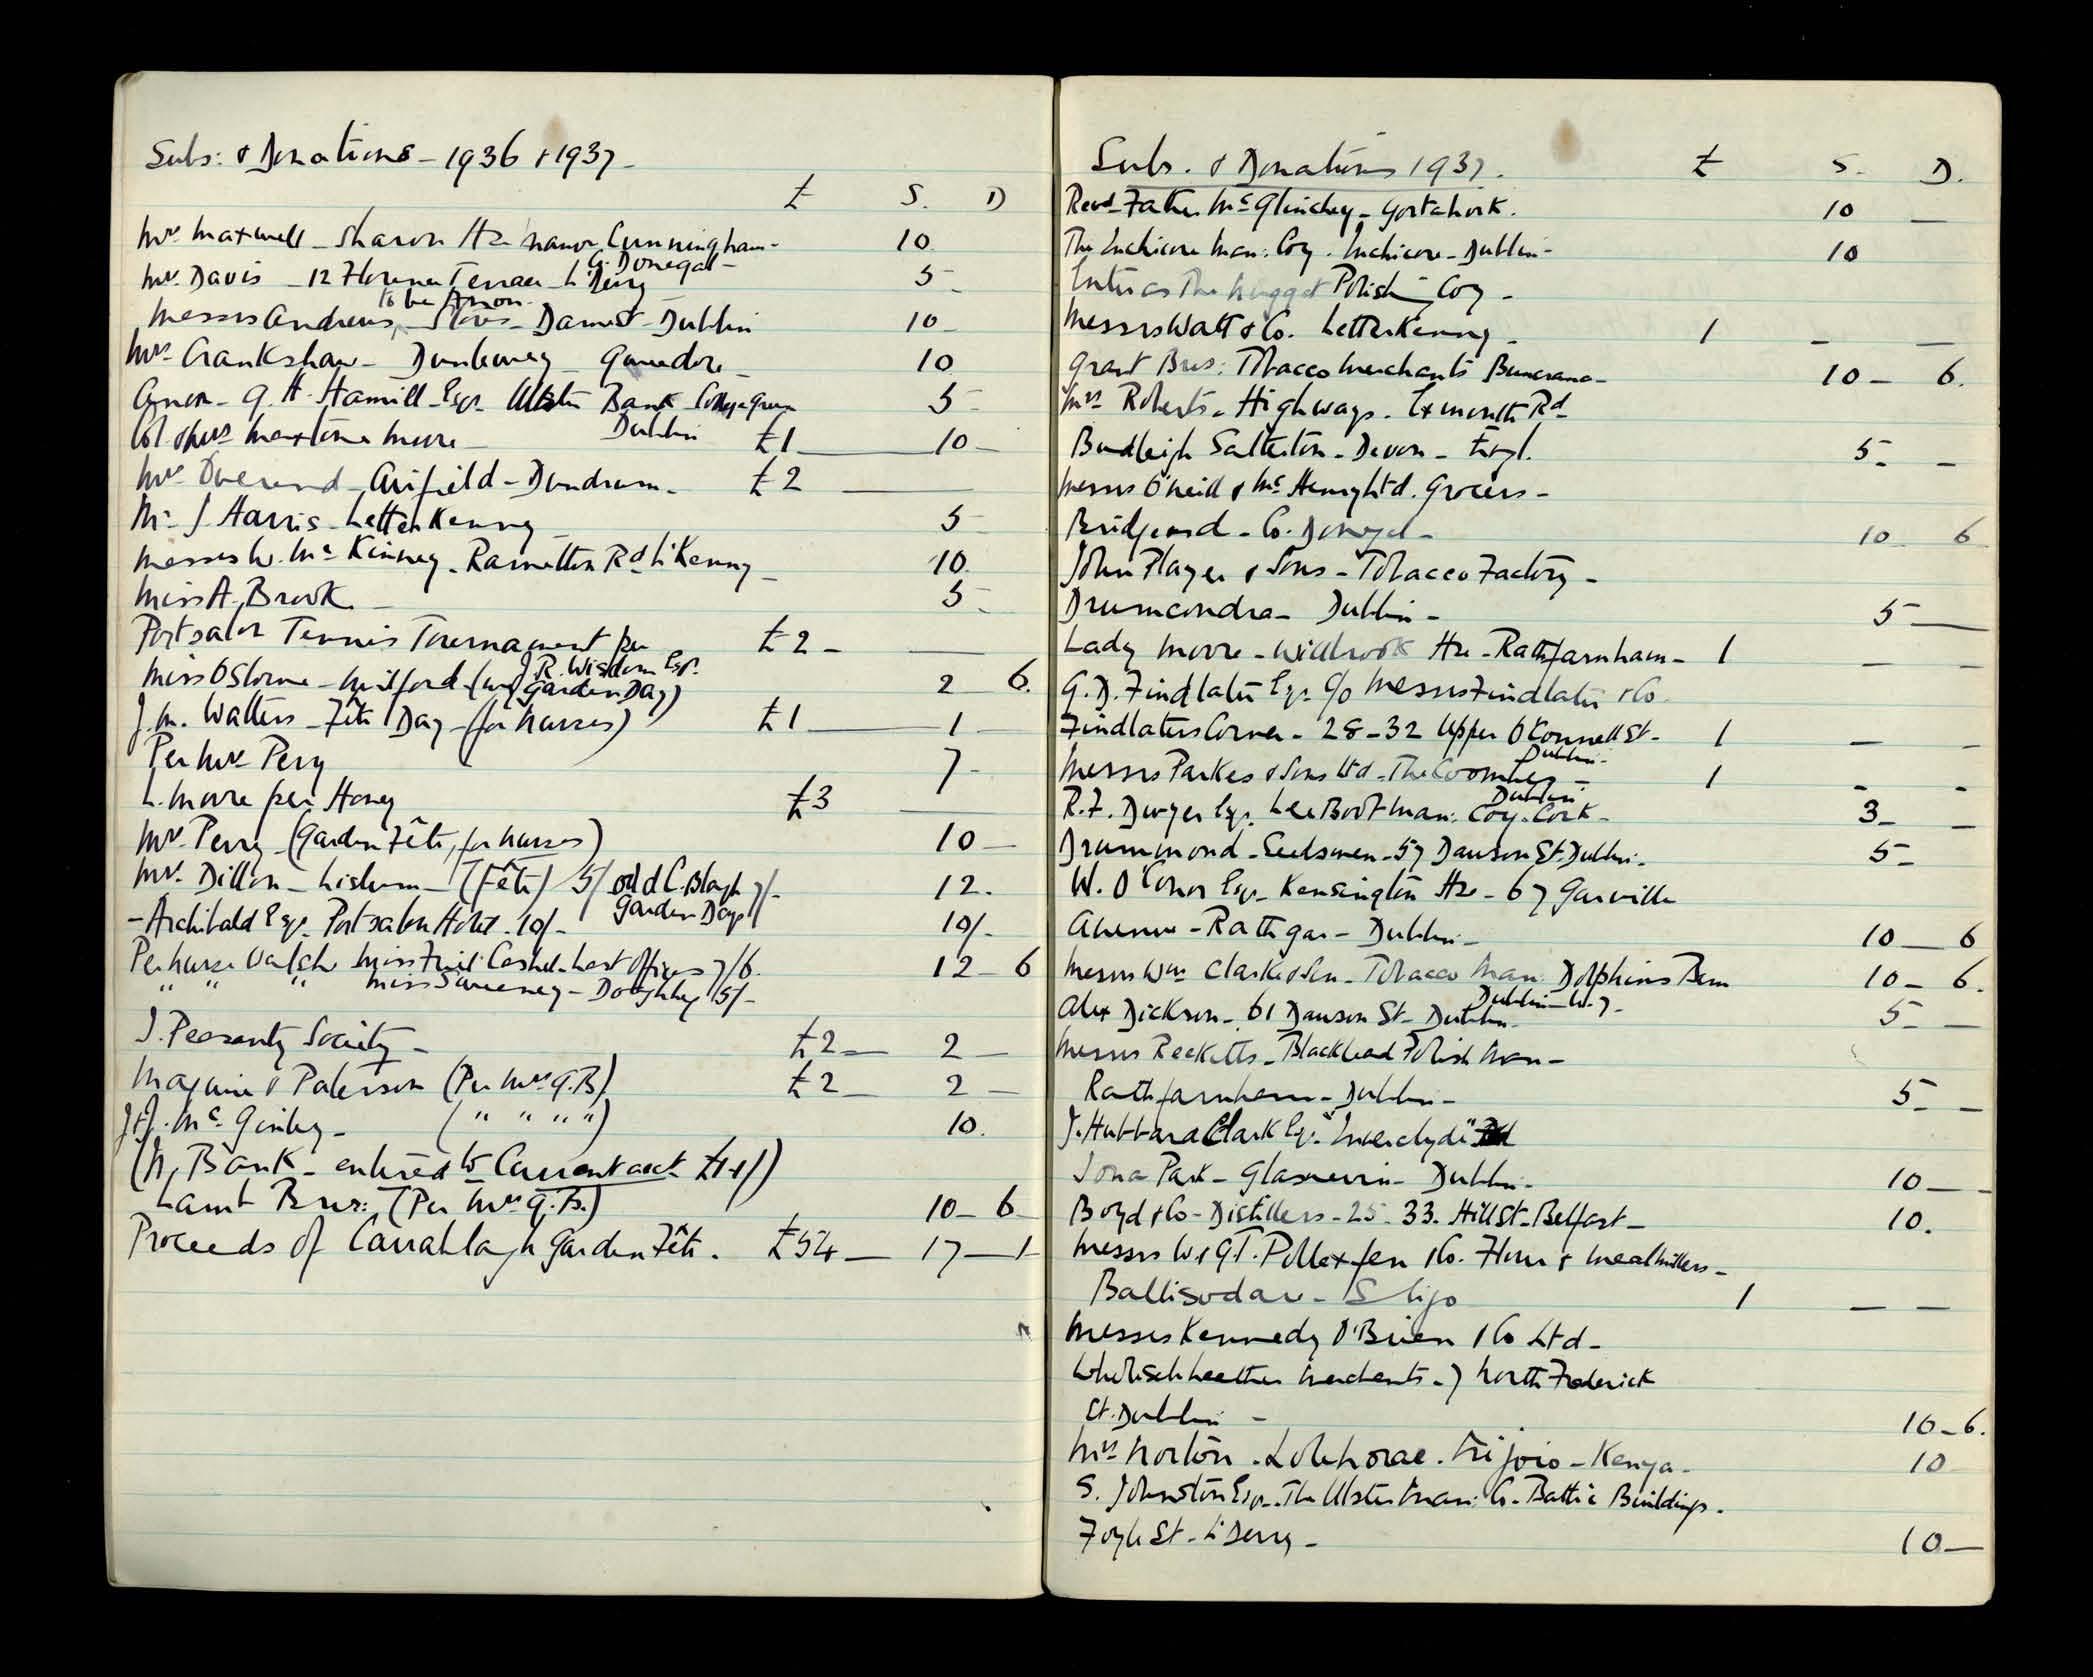 Subs: & Donations - 1936 & 1937 -
£ S. D
Mrs. Maxwell - Sharon Hse Manor Cunningham - 10
Co. Donegal -
Mrs. Davis - 12 Florence Terrace - L'Derry 5 -
to be Anon -
Messrs Andrews, - Stores - Dame St - Dublin 10 -
Mrs. Crankshaw - Dunlewey - Gweedore - 10
Anon - G. H. Hamill - Esqr. Ulster Bank - College Green 5 -
Dublin
Col & Mrs Maxtone Moore - £1 - 10 -
Mrs. Overend - Airfield - Dundrum - £2 -
Mr. J Harris - Letterkenny - 5 -
Messrs W. Mc Kinney - Ramelton Rd L'Kenny - 10.
Miss A. Brook - 5 -
Portsalon Tennis Tournament per £2 -
J. R. Wisdom Esqr.
Miss Osborne - Milford - ( Garden Day) 2 6.
J. M. Watters - Fête Day - (for Nurses) £1 - 1 -
Per Mrs Perry 7 -
L. Moore per Honey £3 -
Mrs. Perry - (Garden Fête, for Nurses) 10 -
Mrs. Dillon - Lislum - (Fête) 5/ old C. Blagh 7/- 12.
Garden Days
- Archibald Esqr. Portsalon Hotel - 10/- 10/-
Per Nurse Walsh Miss Friel Cashel - Post Office 7/6. 12 - 6
" " " Miss Sweeney - 5/-
I. Peasanty Society - £2 - 2 -
Maguire & Paterson (Per Mrs G.B) £2 - 2 -
J & J. Mc Ginley - ( " " " ") 10.
(N, Bank - entered to Current acct £1-1/)
Lamb Bros: (Per Mrs G.B.) 10 - 6
Proceeds of Carrablagh Garden Fête. £54 - 17 - 1
Subs. & Donations 1937.
£ S. D.
Revd - Father McGlinchey - Gortahork. 10 -
The Inchicore Man: Coy. Inchicore - Dublin - 10
Enter as The Nugget Polish Coy -
Messrs Watt & Co. Letterkenny - 1 - -
Grant Bros: Tobacco Merchants Buncrana - 10 - 6.
Mrs Roberts - Highways - Exmouth Rd
Budleigh Salterton - Devon - Engl. 5 - -
Messrs O'Neill & McHenry Ltd. Grocers -
Bridgend - Co. Donegal - 10 6
John Player & Sons - Tobacco Factory -
Drumcondra - Dublin - 5 -
Lady Moore - Willbrook Hse - Rathfarnham - 1 - -
G. D. Findlater Esqr. C/o Messrs Findlater & Co
Findlaters Corner - 28-32 Upper O'Connell St - 1 - -
Dublin -
Messrs Parkes & Sons Ltd - The Coombe - 1 - -
Dublin
R. F. Dwyer Esqr. Lee Boot Man: Coy. Cork - 3 - -
Drummond - Seedsmen - 57 Dawson St. Dublin - 5 -
W. O'Conor Esqr - Kensington Hse - 67 Garville
Avenue - Rathgar - Dublin - 10 - 6
Messrs Wm Clarke & Son - Tobacco Man: Dolphins Barn 10 - 6.
Dublin - W. 7 -
Alex Dickson - 61 Dawson St - Dublin - 5 - -
Messrs Recketts - Blacklead Polish Man -
Rathfarnham - Dublin - 5 - -
J. Hubbard Clark Esqr. "Inverclyde"
Iona Park - Glasnevin - Dublin - 10 - -
Boyd & Co - Distillers - 25 - 33. Hill St - Belfast - 10.
Messrs W. & G.T. Pollexfen & Co. Flour & Meal Millers -
Ballisodare - Sligo 1 - -
Messrs Kennedy O'Brien & Co Ltd -
Wholesale Leather Merchants - 7 North Frederick
St. Dublin - 10 - 6.
Mrs Norton - - Kenya - 10
S. Johnston Esqr. The Ulster Man: Co - Baltic Buildings.
Foyle St - L'Derry - 10 -